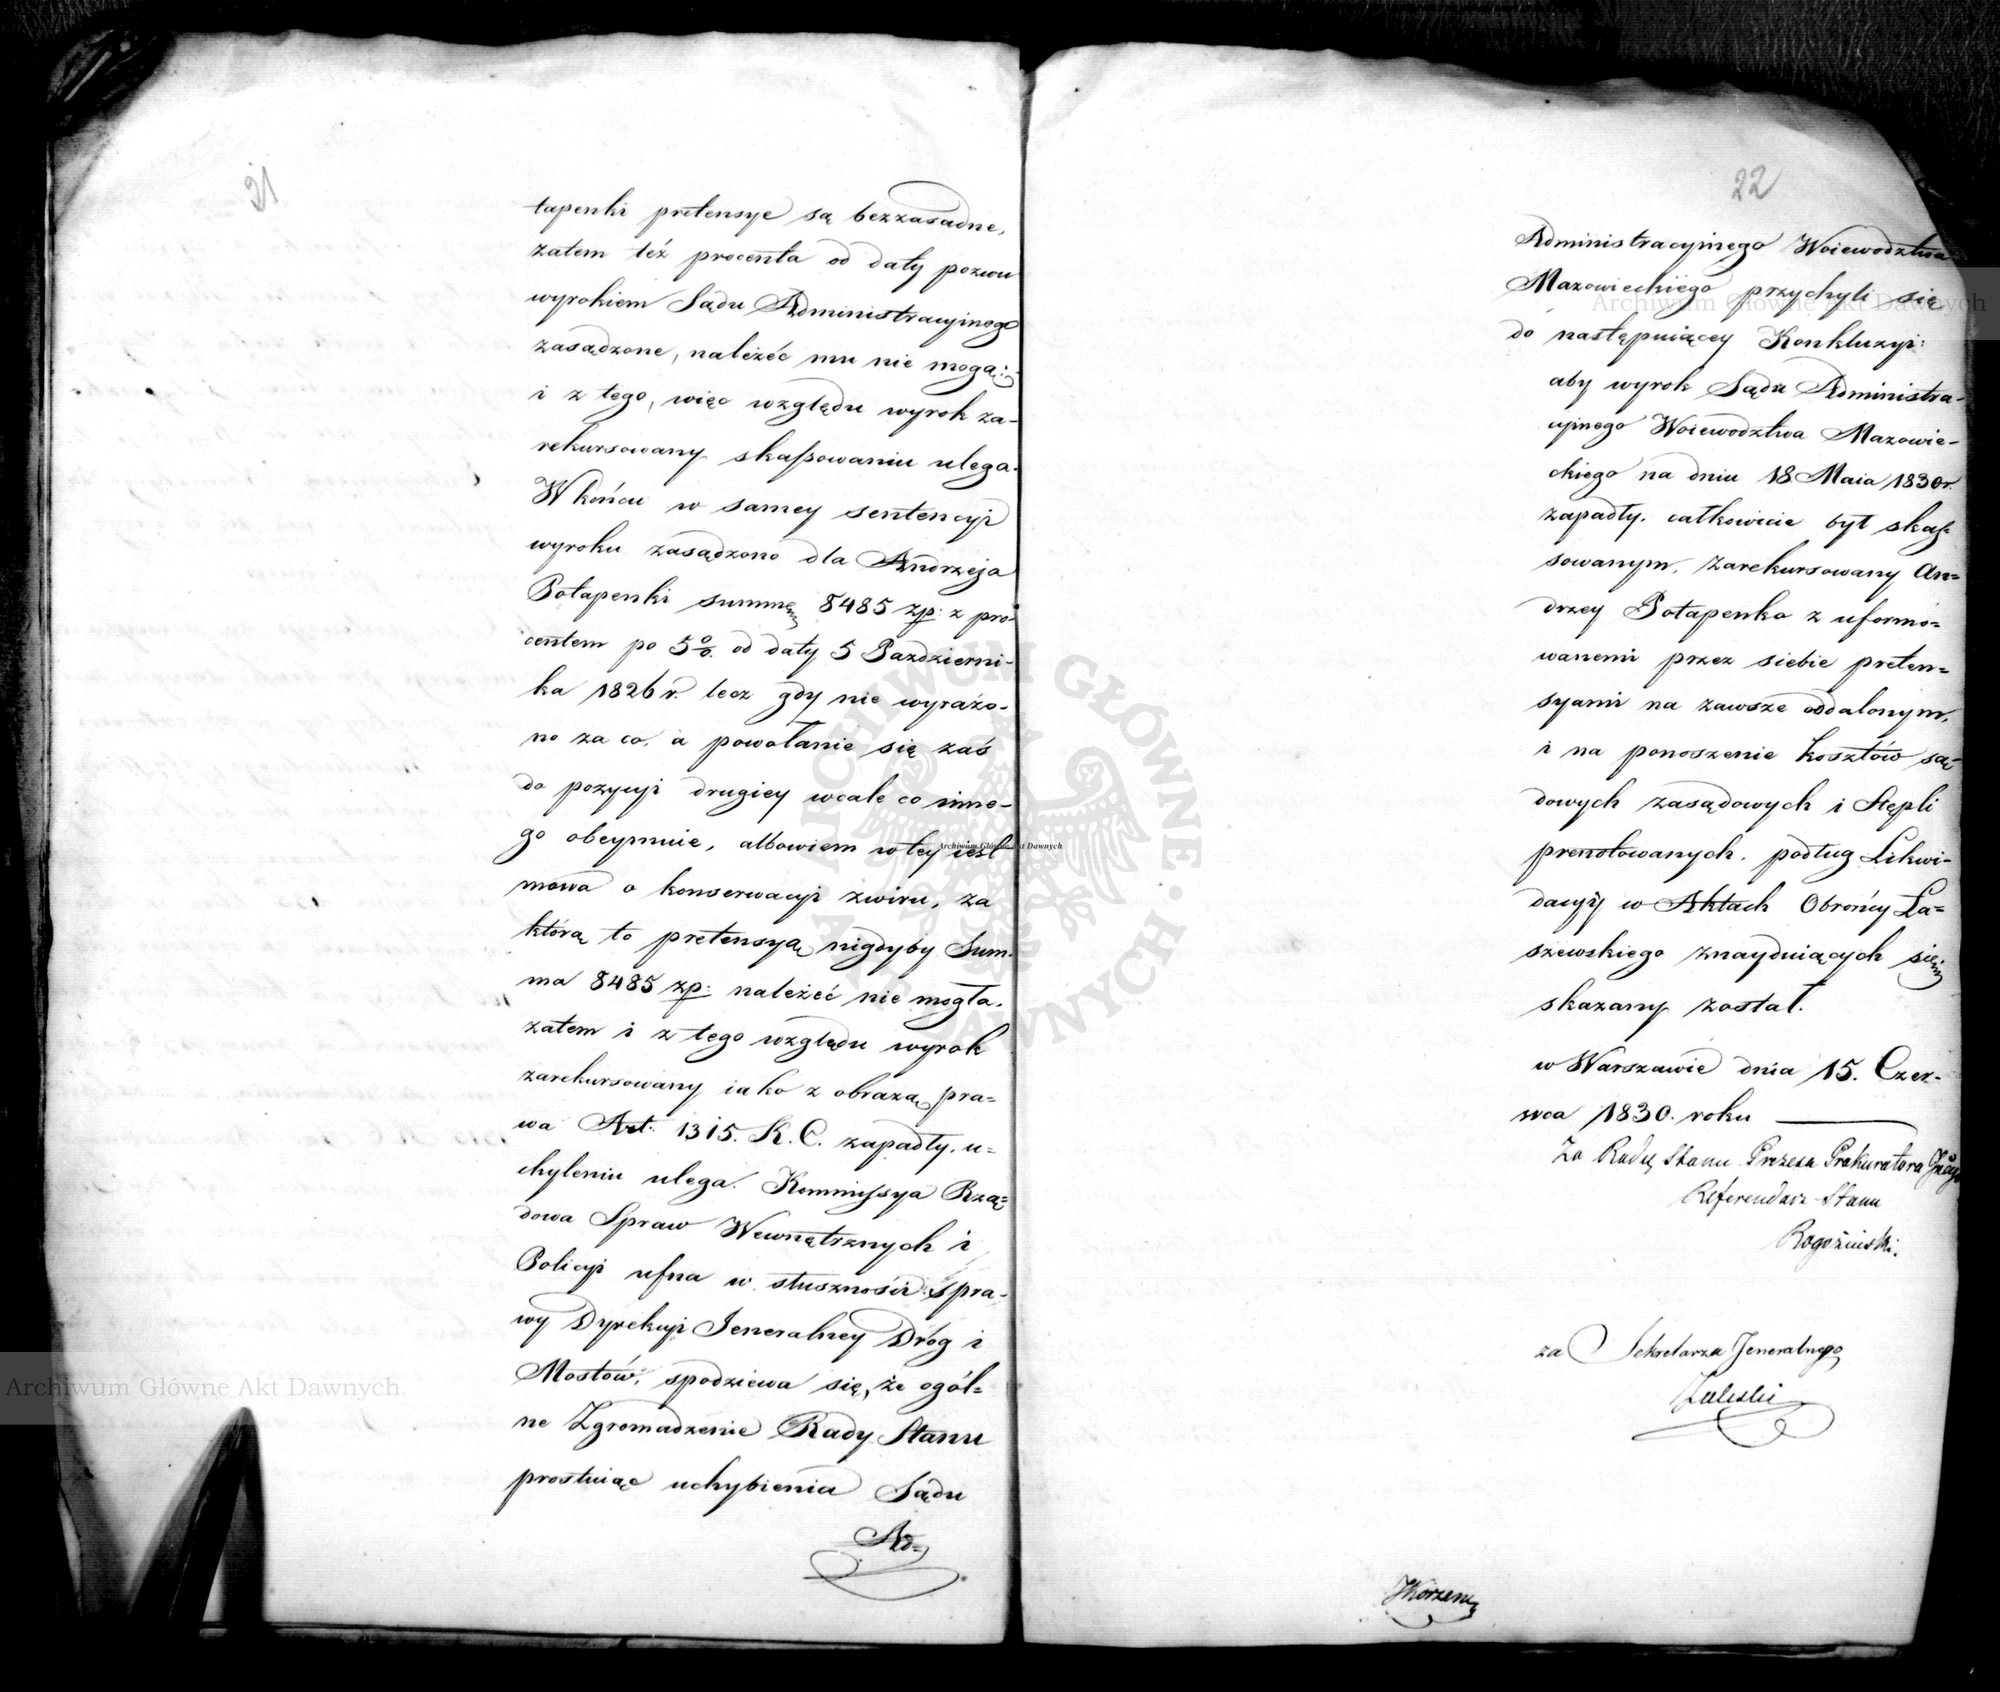 21
tapenki pretensye są bezzasadne,
zatem też procenta od daty pozwu
wyrokiem Sądu Administracyinego
zasądzone, należéć mu nie mogą:
i z tego, więc względu wyrok za-
rekursowany skassowaniu ulega.
W końcu w samey sentencyi
wyroku zasądzono dla Andrzeja
Potapenki summę 8485 zp: z pro-
centem po 5% od daty 5 Pazdzierni-
ka 1826 r. lecz gdy nie wyrażo-
no za co, a powołanie się zaś
do pozycyi drugiey wcale co inne-
go obeymuie, albowiem w tey iest
mowa o konserwacyi zwiru, za
którą to pretensyą nigdyby Sum-
ma 8485 zp: należéć nie mogła.
zatem i z tego względu wyrok
zarekursowany iako z obrazą pra=
wa Art: 1315. K. C. zapadły, u=
chyleniu ulega. Kommissya Rzą=
dowa Spraw Wewnętrznych i
Policyi ufna w słuszności spra-
wy Dyrekcyi Jeneralney Dróg i
Mostów, spodziewa się, że ogól=
ne Zgromadzenie Rady Stanu
prostuiąc uchybienia Sądu
Ad=
22
Administracyinego Woiewodztwa
Mazowieckiego przychyli się
do następuiącey Konkluzyi:
aby wyrok Sądu Administra-
cyinego Woiewodztwa Mazowie-
ckiego na dniu 18. Maia 1830 r.
zapadły, całkowicie był skas-
sowanym, zarekursowany An=
drzey Potapenko z uformo=
wanemi przez siebie preten=
syami na zawsze oddalonym,
i na ponoszenie kosztów są-
dowych zasądowych i Stępli
prenotowanych, podług Likwi-
dacyi w Aktach Obrońcy La=
szewskiego znayduiących się
skazany został.
w Warszawie dnia 15. Czer-
wca 1830. roku
Za Radcę Stanu Prezesa Prokuratora
Referendarz Stanu
Rogoziński.
za Sekretarza Jeneralnego
Zaleski
Archiwum Główne Akt Dawnych
Archiwum Główne Akt Dawnych
Archiwum Główne Akt Dawnych
ARCHIWUM GŁÓWNE AKT DAWNYCH